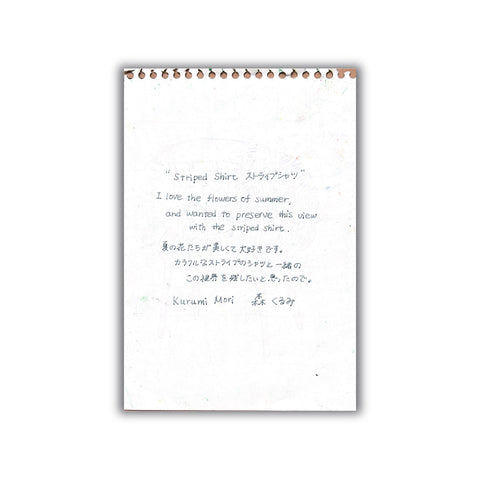 "Striped Shirt ストライプシャツ"
I love the flowers of summer,
and wanted to preserve this view
with the striped shirt.
夏の花たちが美しくて大好きです。
カラフルなストライプのシャツと一緒の
この視界を残したいと思ったので。
Kurumi Mori 森くるみ